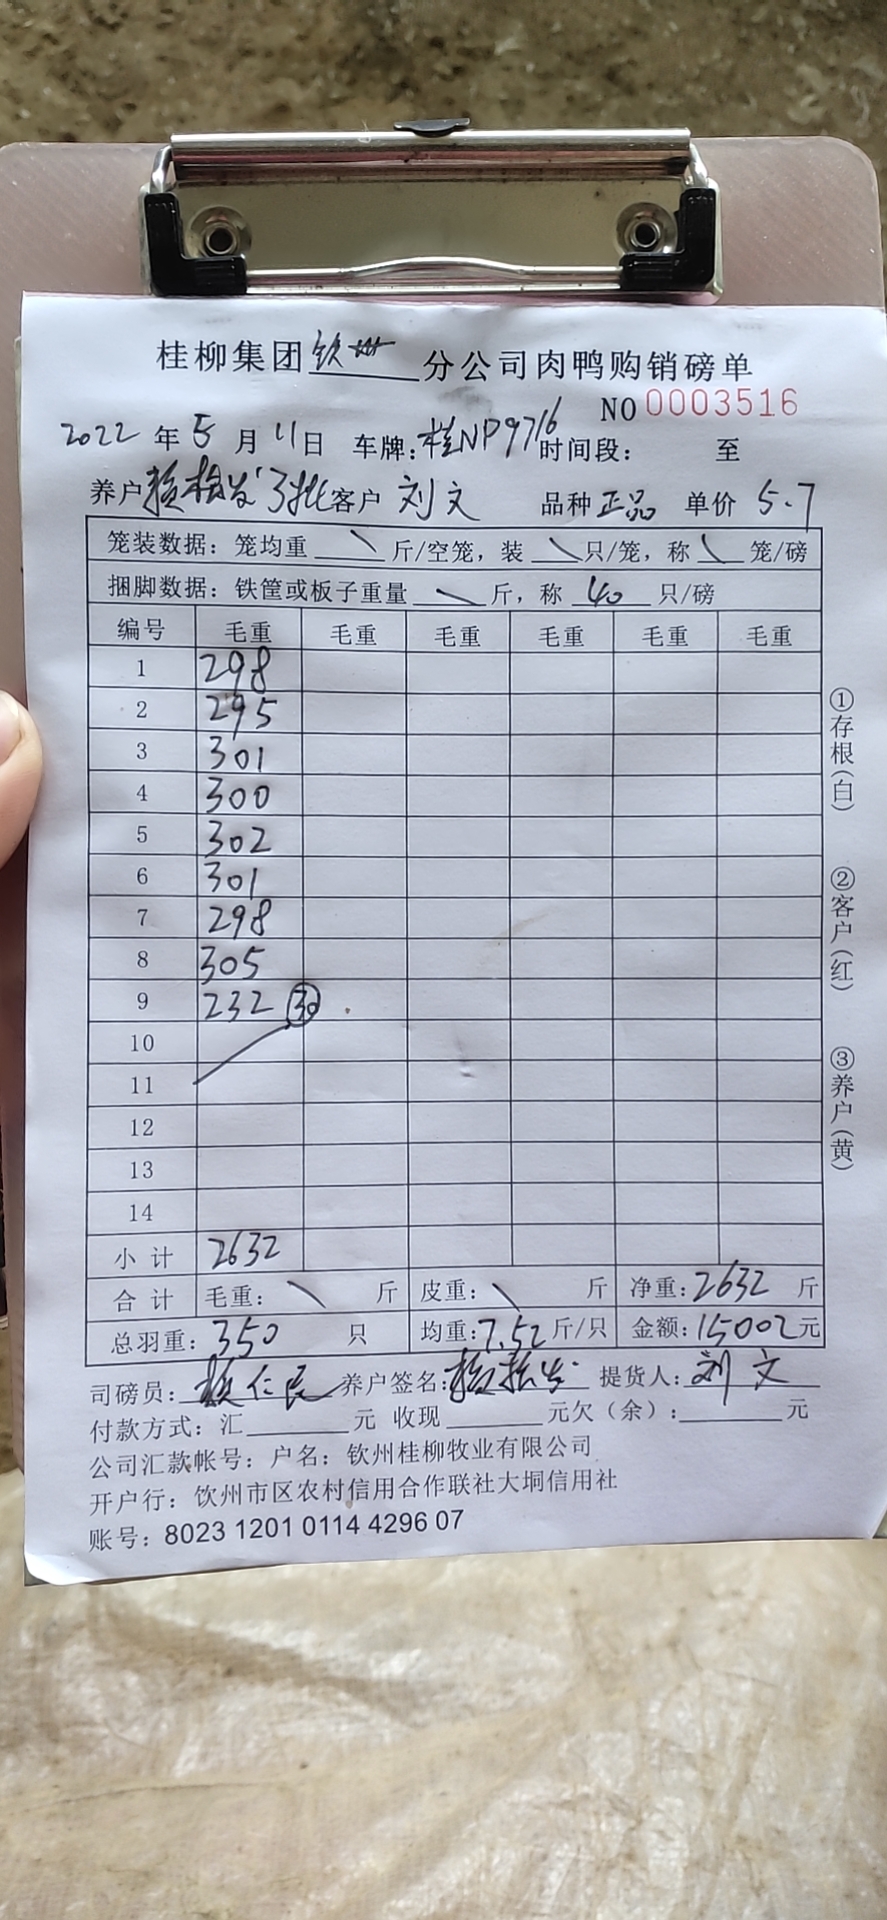 桂柳集团钦州分公司肉鸭购销磅单
NO 0003516
2022年5月11日 车牌:桂NP9716 时间段: 至
养户 客户刘文 品种正品 单价5.7
笼装数据:笼均重\斤/空笼,装\只/笼,称\笼/磅
捆脚数据:铁筐或板子重量\斤,称40只/磅
编号 毛重 毛重 毛重 毛重 毛重 毛重
1 298
2 295
3 301
4 300
5 302
6 301
7 298
8 305
9 232 30
10
11
12
13
14
小计 2632
合计 毛重:\斤 皮重:\斤 净重:2632斤
总羽重:350只 均重:7.52斤/只 金额:15002元
司磅员: 仁民 养户签名: 提货人:刘文
付款方式:汇____元 收现____元欠(余):____元
公司汇款帐号:户名:钦州桂柳牧业有限公司
开户行:钦州市区农村信用合作联社大垌信用社
账号:8023 1201 0114 4296 07
①存根(白)
②客户(红)
③养户(黄)